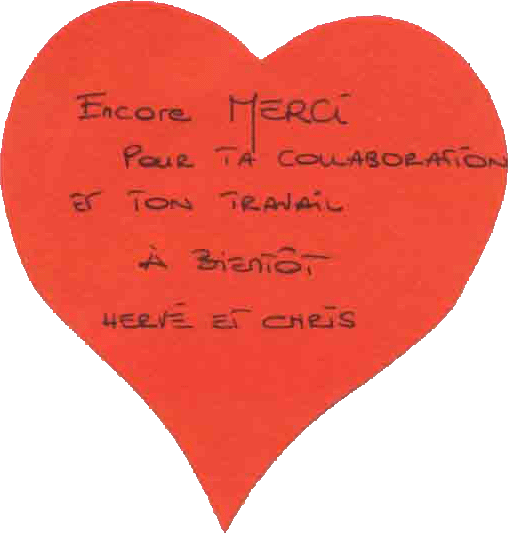 Encore MERCi
POUR TA COLLABORATION
ET TON TRAVAIL
À BIENTÔT
HERVÉ ET CHRIS